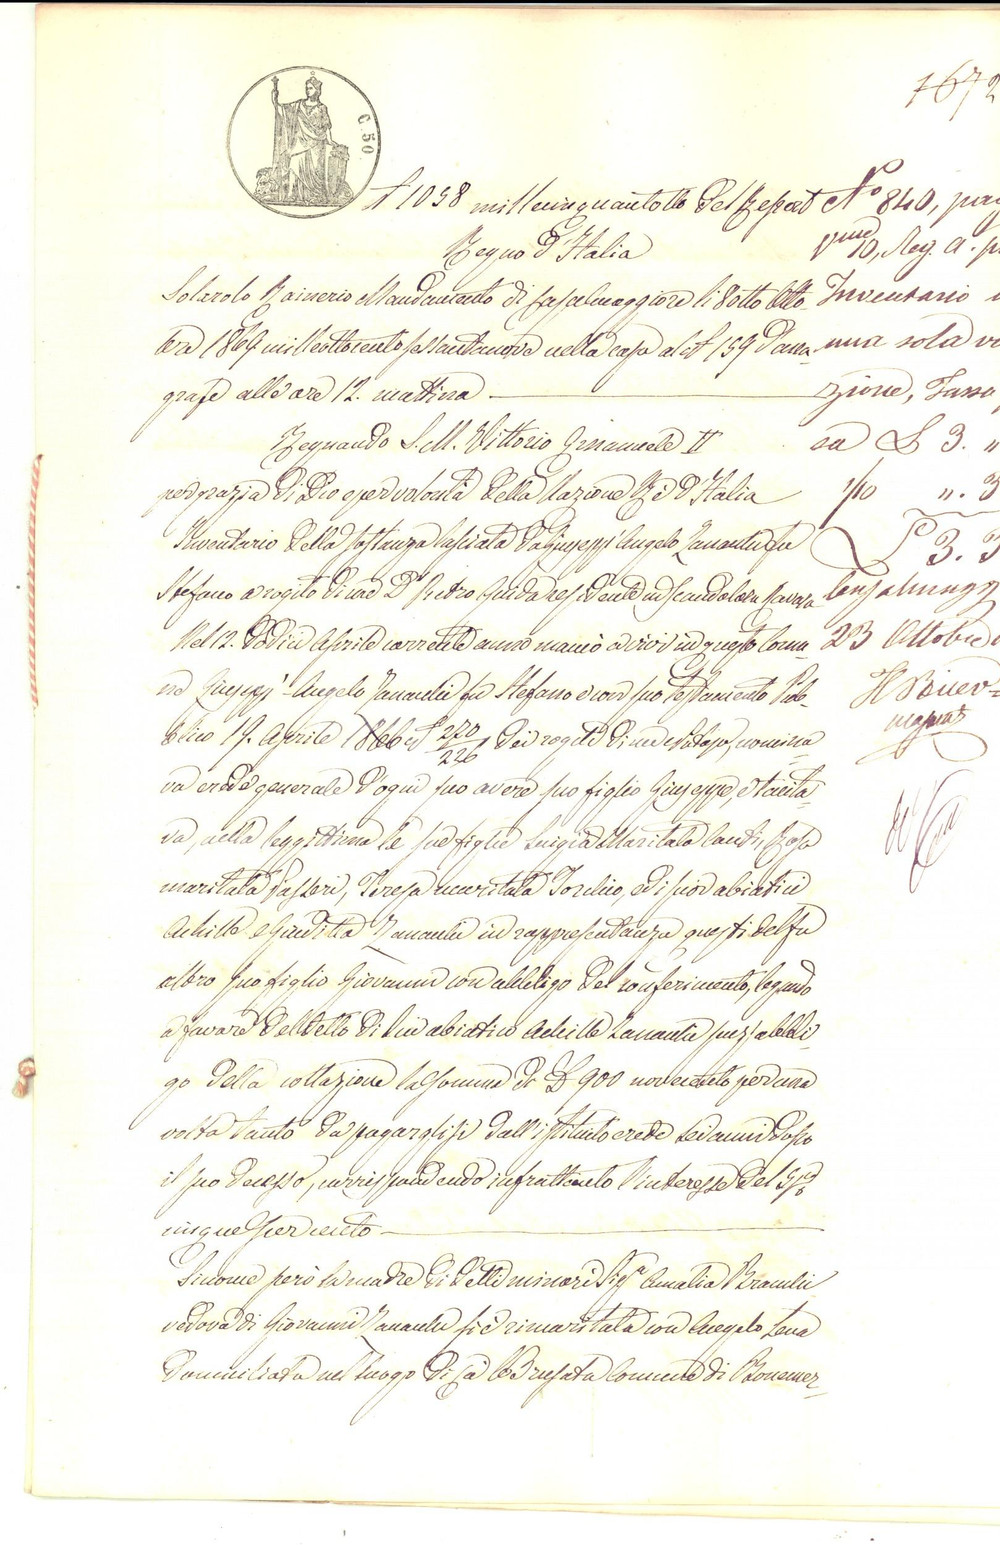 1672
C. 50
N 1058 millecinquantotto del Repert
Regno d'Italia
Solarolo Rainerio Mandamento di Casalmaggiore li 8 otto Otto-
bre 1869 milleottocentosessantanove nella casa al N 159 d'ana-
grafe alle ore 12. mattina
Regnando S. M. Vittorio Emanuele II
per grazia di Dio e per volontà della Nazione Re d'Italia
Inventario della sostanza lasciata da Giuseppe Angelo Zanardi fu
Stefano a rogito di me Dr Pietro residente in Scandolara Ravara
Nel 12. dodici Aprile corrente anno mancò ai vivi in questo Comu-
ne Giuseppe Angelo Zanardi fu Stefano e con suo Testamento Pub-
blico 19. Aprile 1866 N 270/226 dei rogiti di me nomina-
va erede generale d'ogni suo avere suo figlio Giuseppe, e tacita-
va, nella leggittima le sue figlie Luigia Maritata Rosa
maritata Passeri, Teresa maritata e di suoi abiatici
Achille e Giuditta Zanardi in rappresentanza questi del fu
altro suo figlio Giovanni con obbligo del conferimento, legando
a favore del detto di lui abiatico Achille Zanardi senz'obbli-
go della collazione la somma di L 900 novecento per una
volta tanto da pagarglisi dall'istituito erede sei anni dopo
il suo decesso, corrispondendo infrattanto l'interesse del 5 p%
cinque per cento
Siccome però la madre di detti minori Sigra Amalia
vedova di Giovanni Zanardi si è rimaritata con Angelo Lena
domiciliata nel luogo di Cà de Comune di Bonemer-
No 840, pag
Vme 10, Reg. A. p
Inventario
una sola
zione, Tassa
sa L 3. "
1/10 ". 3
L 3. 3
Casalmagg
23 Ottobre
Il Ricev-